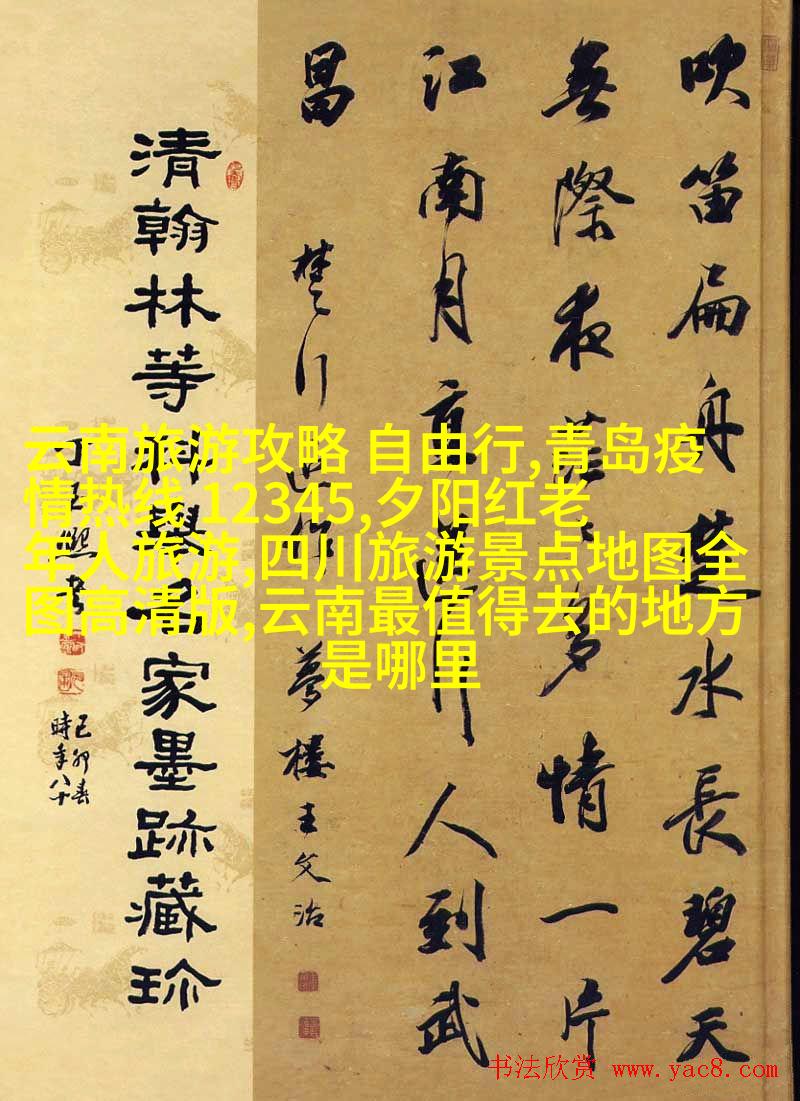 吹笛扁舟楚水長碧天
無際夜茫多情一片
江南月直行人到武
昌
楚行作 夢樓王文治
清翰林等科舉名家墨跡藏珍
熙書
己卯春
時年八十
云南旅游攻略 自由行,青岛疫
情热线 12345,夕阳红老
年人旅游,四川旅游景点地图全
图高清版,云南最值得去的地方
是哪里
书法欣赏 www.yac8.com